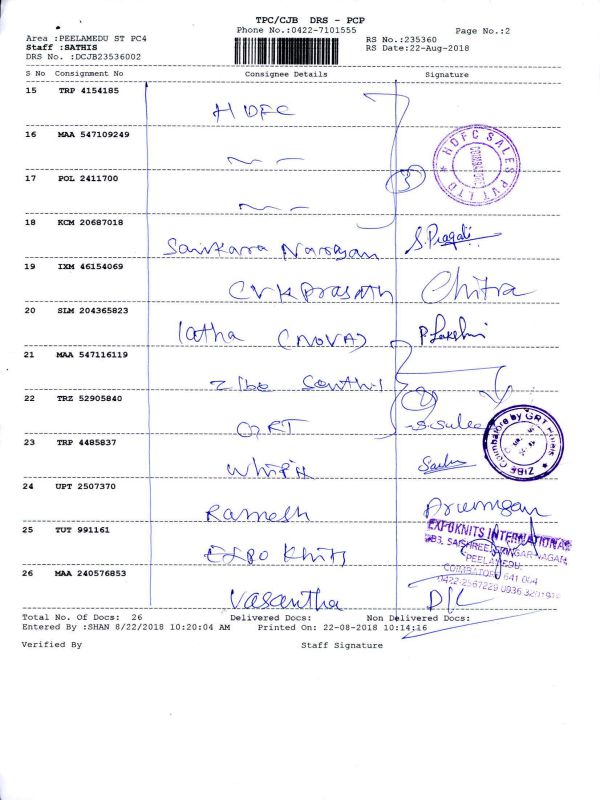 TPC/CJB DRS - PCP
Phone No.:0422-7101555
Page No.:2
Area :PEELAMEDU ST PC4
Staff :SATHIS
DRS No. :DCJB23536002
RS No.:235360
RS Date:22-Aug-2018
S No Consignment No Consignee Details Signature
15 TRP 4154185
HDFC
16 MAA 547109249
HDFC SALES PVT LTD
17 POL 2411700
3
18 KCM 20687018
Sankara Narayan S.Pragati
19 IXM 46154069
CVK Prasath Chitra
20 SLM 204365823
latha (NOVA) P. Lakshmi
21 MAA 547116119
Zibo Senthil
22 TRZ 52905840
GRT
ZIBE Coimbatore by GRT Hotels
23 TRP 4485837
24 UPT 2507370
Ramesh Arumugam
25 TUT 991161
Expo Knits
EXPOKNITS INTERNATIONAL
PEELAMEDU,
COIMBATORE 641 004
26 MAA 240576853
Vasantha D/L
Total No. Of Docs: 26 Delivered Docs: Non Delivered Docs:
Entered By :SHAN 8/22/2018 10:20:04 AM Printed On: 22-08-2018 10:14:16
Verified By Staff Signature